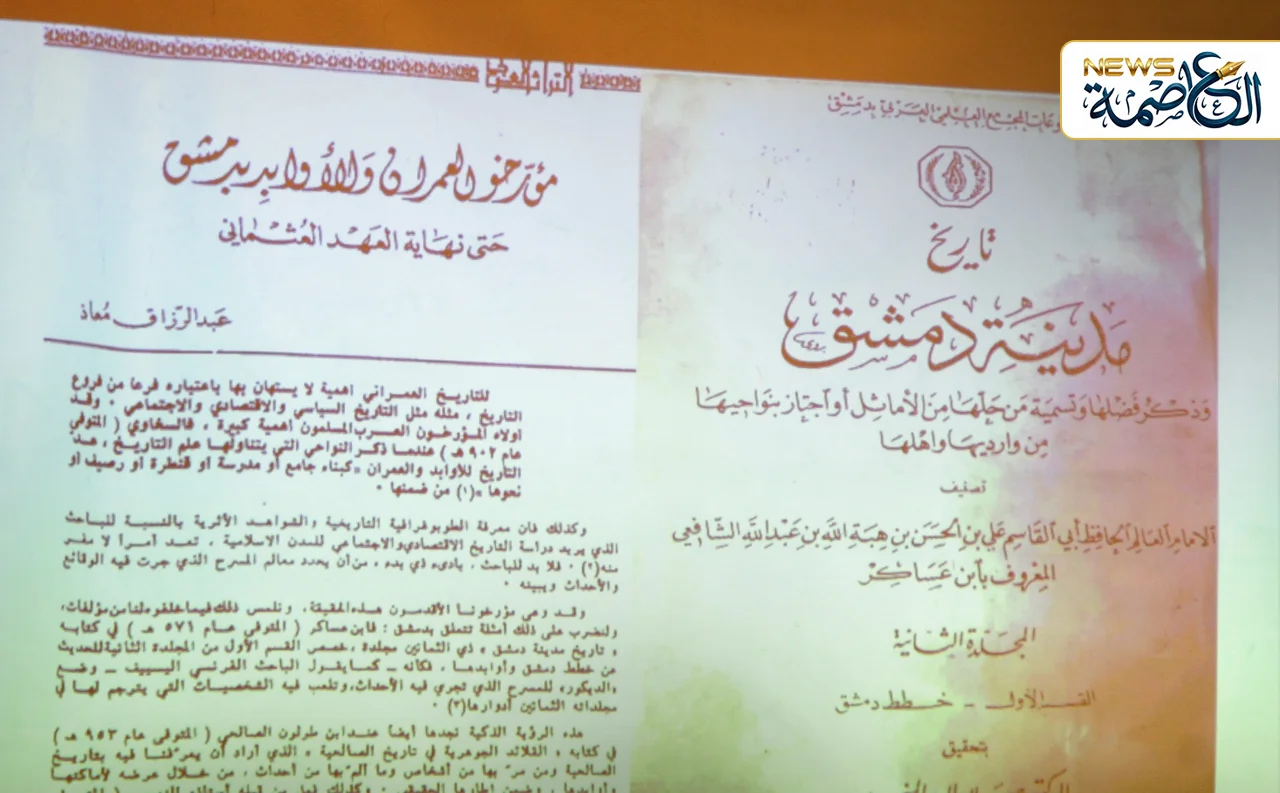 NEWS
العاصمة
التراث العربي
مؤرخو العمران والأوابد بدمشق
حتى نهاية العهد العثماني
عبد الرزاق معاذ
للتاريخ العمراني أهمية لا يستهان بها باعتباره فرعا من فروع
التاريخ ، مثله مثل التاريخ السياسي والاقتصادي والاجتماعي ٠ وقد
أولاه المؤرخون العرب المسلمون أهمية كبيرة ، فالسخاوي ( المتوفي
عام ٩٠٢ هـ ) عندما ذكر النواحي التي يتناولها علم التاريخ ، عد
التاريخ للأوابد والعمران «كبناء جامع أو مدرسة أو قنطرة أو رصيف أو
نحوها »(١) من ضمنها ٠
وكذلك فان معرفة الطوبوغرافية التاريخية والشواهد الأثرية بالنسبة للباحث
الذي يريد دراسة التاريخ الاقتصادي والاجتماعي للمدن الاسلامية ، تعد أمرا لا مفر
منه(٢) ٠ فلا بد للباحث ، بادىء ذي بدء ، من أن يحدد معالم المسرح الذي جرت فيه الوقائع
والأحداث ويبينه ٠
وقد وعى مؤرخونا الأقدمون هذه الحقيقة ، ونلمس ذلك فيما خلفوه لنا من مؤلفات،
ولنضرب على ذلك أمثلة تتعلق بدمشق : فابن عساكر ( المتوفى عام ٥٧١ هـ ) في كتابه
« تاريخ مدينة دمشق » ذي الثمانين مجلدة ، خصص القسم الأول من المجلدة الثانية للحديث
من خطط دمشق وأوابدها ، فكأنه ــ كما يقول الباحث الفرنسي اليسييف ــ وضع
«الديكور» للمسرح الذي تجري فيه الأحداث، وتلعب فيه الشخصيات التي يترجم لها في
مجلداته الثمانين أدوارها(٣) ٠
هذه الرؤية الذكية نجدها أيضا عند ابن طولون الصالحي ( المتوفى عام ٩٥٣ هـ )
في كتابه « القلائد الجوهرية في تاريخ الصالحية » الذي أراد أن يعرفنا فيه بتاريخ
الصالحية ومن مر بها من أشخاص وما ألم بها من أحداث ، من خلال عرضه لأماكنها
وأوابدها ، وضمن إطارها الحقيقي ٠ وكذلك فعل من قبله أستاذه
المجمع العلمي العربي بدمشق
تاريخ
مدينة دمشق
وذكر فضلها وتسمية من حلها من الأماثل أو اجتاز بنواحيها
من وارديها وأهلها
تصنيف
الامام العالم الحافظ أبي القاسم علي بن الحسن بن هبة الله بن عبد الله الشافعي
المعروف بابن عساكر
المجلدة الثانية
القسم الأول - خطط دمشق
بتحقيق